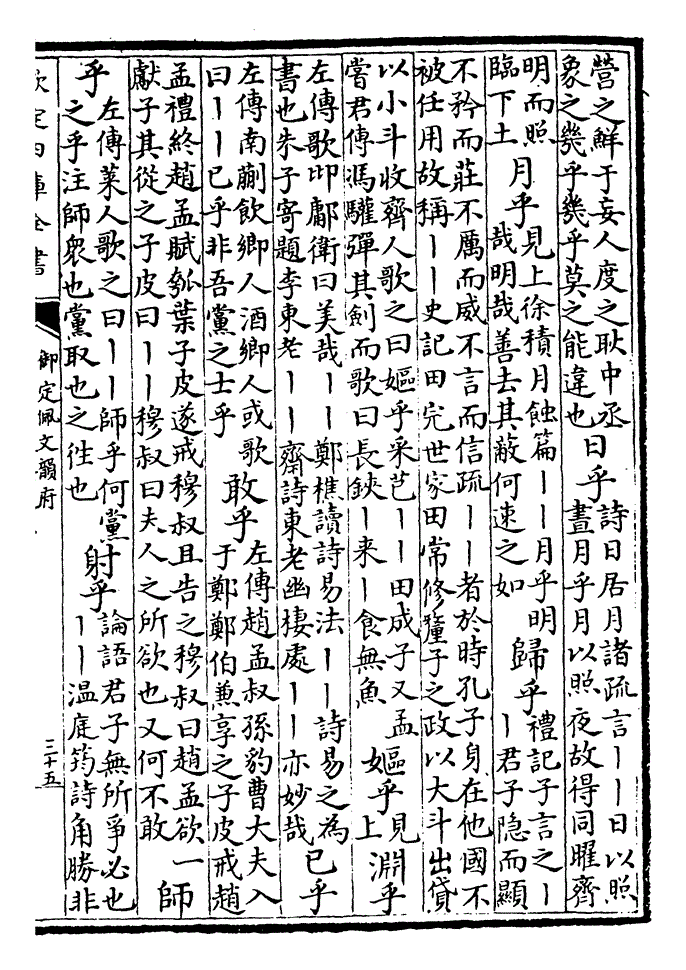 營之鮮于妄人度之耿中丞
象之幾乎幾乎莫之能違也
日乎
詩日居月諸疏言丨丨日以照
晝月乎月以照夜故得同曜齊
明而照
臨下土
月乎
見上徐積月蝕篇丨丨月乎明
哉明哉善去其蔽何速之如
歸乎
禮記子言之丨
丨君子隐而顯
不矜而莊不厲而威不言而信疏丨丨者於時孔子身在他國不
被任用故稱丨丨史記田完世家田常修釐子之政以大斗出貸
以小斗收齊人歌之曰嫗乎采芑丨丨田成子又孟
嘗君傳馮驩彈其劍而歌曰長鋏丨来丨食無魚
嫗乎
見
上
淵乎
左傳歌邶鄘衛曰美哉丨丨鄭樵讀詩易法丨丨詩易之為
書也朱子寄題李東老丨丨齋詩東老幽棲處丨丨亦妙哉
已乎
左傳南蒯飲鄉人酒鄉人或歌
曰丨丨已乎非吾黨之士乎
敢乎
左傳趙孟叔孫豹曹大夫入
于鄭鄭伯兼享之子皮戒趙
孟禮終趙孟賦瓠葉子皮遂戒穆叔且告之穆叔曰趙孟欲一
獻子其從之子皮曰丨丨穆叔曰夫人之所欲也又何不敢
師
乎
左傳萊人歌之曰丨丨師乎何黨
之乎注師衆也黨取也之徃也
射乎
論語君子無所爭必也
丨丨温庭筠詩角勝非
欽定四庫全書
御定佩文韻府
三十五